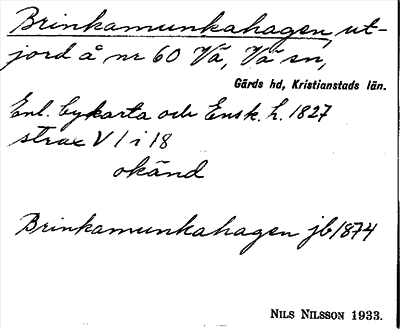 Brinkamunkahagen, ut-
jord å nr 60 Vä, Vä sn,
Gärds hd, Kristianstads län.
Enl. bykarta och Ensk. h. 1827
strax V / i 18
okänd
Brinkamunkahagen jb 1874
NILS NILSSON 1933.